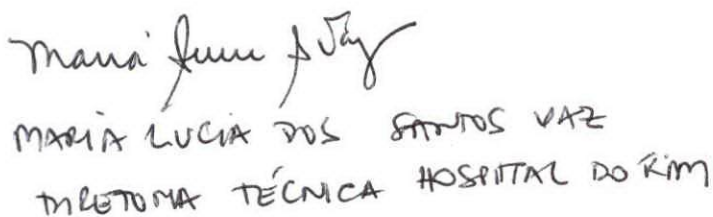 Maria Lucia S Vaz
MARIA LUCIA DOS SANTOS VAZ
DIRETORA TÉCNICA HOSPITAL DO RIM